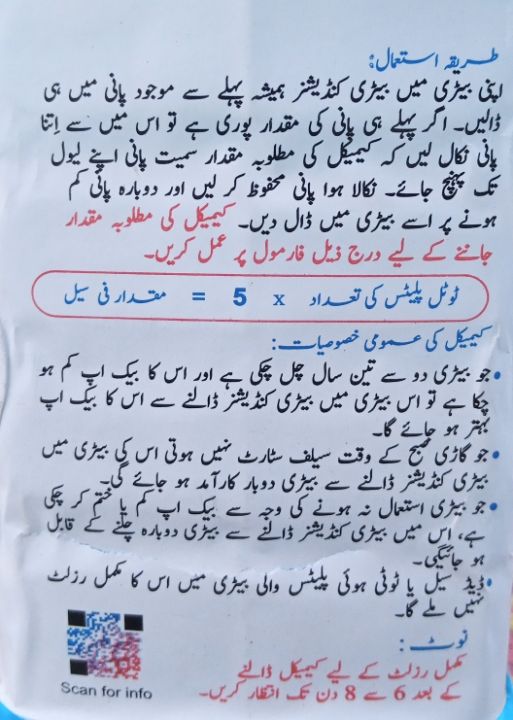 طریقہ استعمال:
اپنی بیڑی میں بیڑی کنڈیشنر ہمیشہ پہلے سے موجود پانی میں ہی
ڈالیں۔ اگر پہلے ہی پانی کی مقدار پوری ہے تو اس میں سے اِتنا
پانی نکال لیں کہ کیمیکل کی مطلوبہ مقدار سمیت پانی اپنے لیول
تک پہنچ جائے۔ نکالا ہوا پانی محفوظ کر لیں اور دوبارہ پانی کم
ہونے پر اسے بیڑی میں ڈال دیں۔ کیمیکل کی مطلوبہ مقدار
جاننے کے لیے درج ذیل فارمول پر عمل کریں۔
ٹوٹل پلیٹس کی تعداد x 5 = مقدار فی سیل
کیمیکل کی عمومی خصوصیات:
• جو بیڑی دو سے تین سال چل چکی ہے اور اس کا بیک اپ کم ہو
چکا ہے تو اس بیڑی میں بیڑی کنڈیشنر ڈالنے سے اس کا بیک اپ
بہتر ہو جائے گا۔
• جو گاڑی صبح کے وقت سیلف سٹارٹ نہیں ہوتی اس کی بیڑی میں
بیڑی کنڈیشنر ڈالنے سے بیڑی دوبار کارآمد ہو جائے گی۔
• جو بیڑی استعمال نہ ہونے کی وجہ سے بیک اپ کم یا ختم کر چکی
ہے، اس میں بیڑی کنڈیشنر ڈالنے سے بیڑی دوبارہ چلنے کے قابل
ہو جائیگی۔
• ڈیڈ سیل یا ٹوٹی ہوئی پلیٹس والی بیڑی میں اس کا مکمل رزلٹ
نہیں ملے گا۔
نوٹ:
مکمل رزلٹ کے لیے کیمیکل ڈالنے
کے بعد 6 سے 8 دن تک انتظار کریں۔
Scan for info